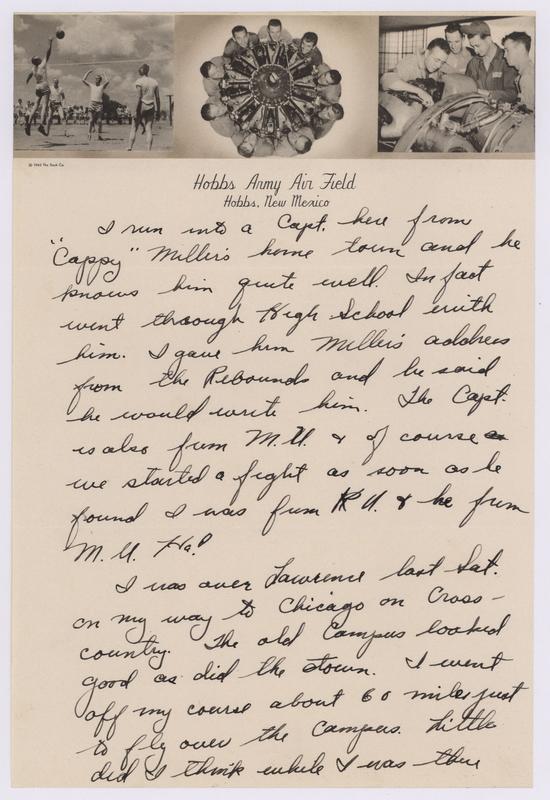 © 1942 The Beck Co.
Hobbs Army Air Field
Hobbs, New Mexico
I run into a Capt. here from
"Cappy" Miller's home town and he
knows him quite well. In fact
went through High School with
him. I gave him Miller's address
from the Rebounds and he said
he would write him. The Capt.
is also from M.U. & of course
we started a fight as soon as he
found I was from K.U. & he from
M.U. Ha!
I was over Lawrence last Sat.
on my way to Chicago on Cross-
country. The old Campus looked
good as did the town. I went
off my course about 60 miles just
to fly over the Campus. Little
did I think while I was there